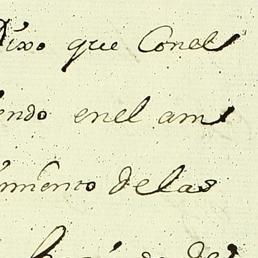 Dixo que Conel
endo enel am
imiento delas